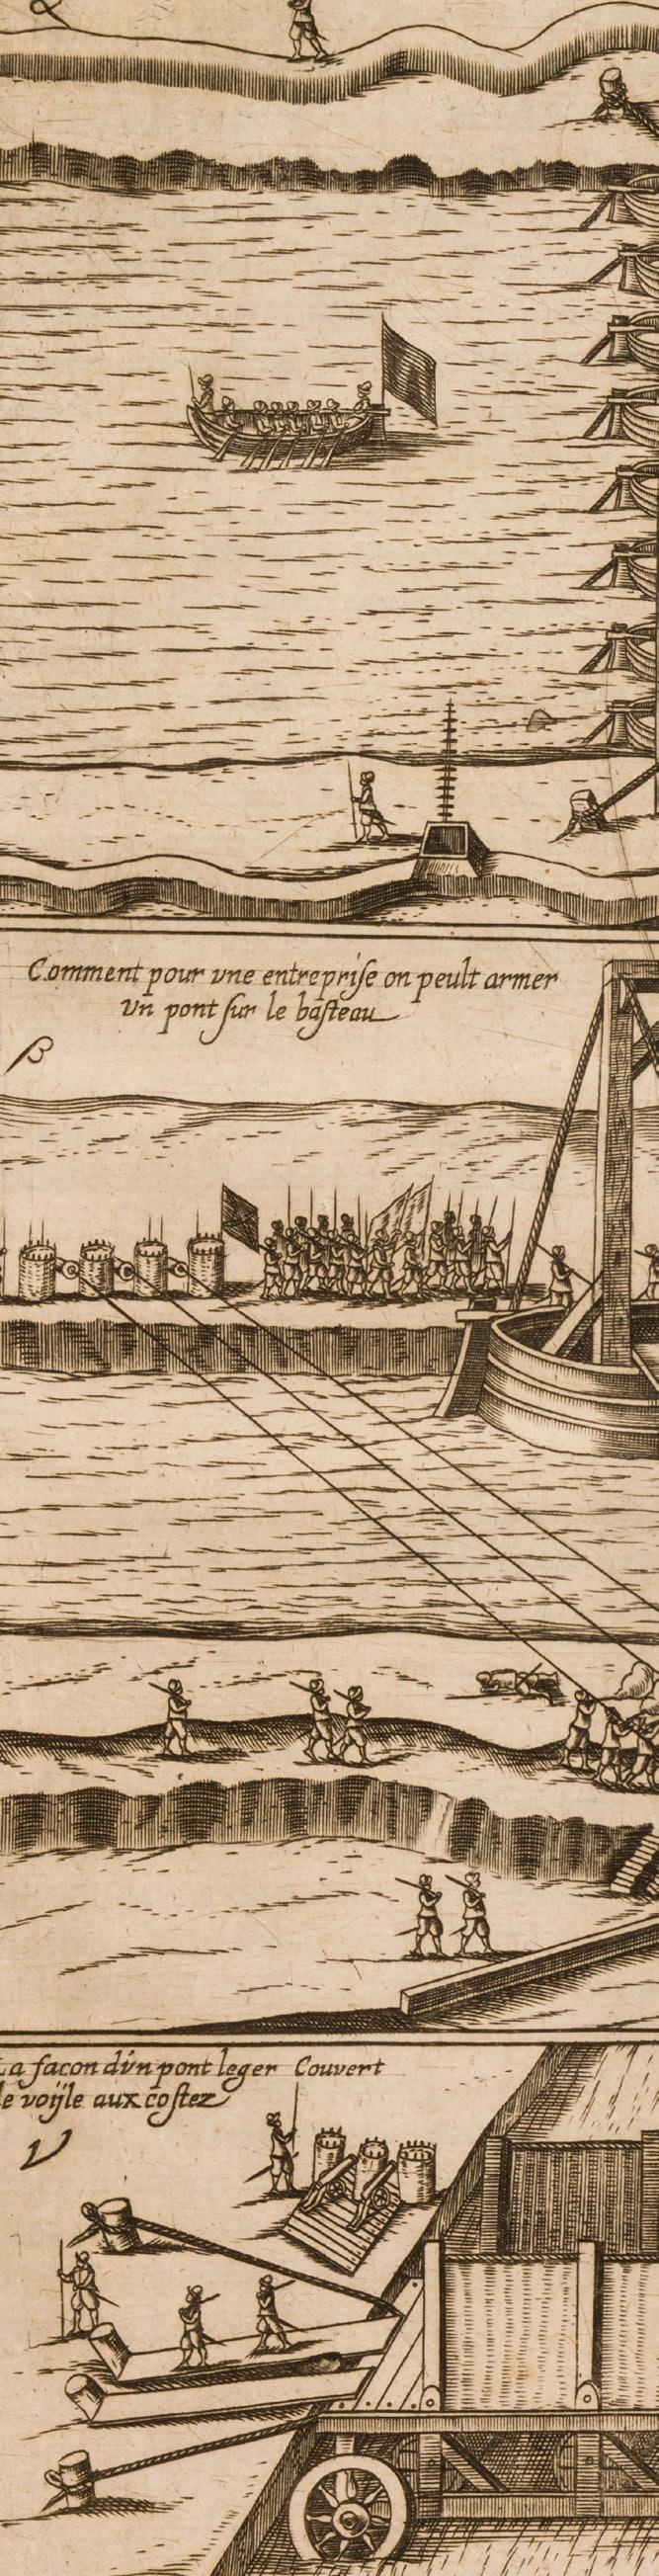 α
Comment pour vne entreprise on peult armer
Vn pont sur le basteau
β
La facon dvn pont leger Couvert
de voijle aux costez
ν